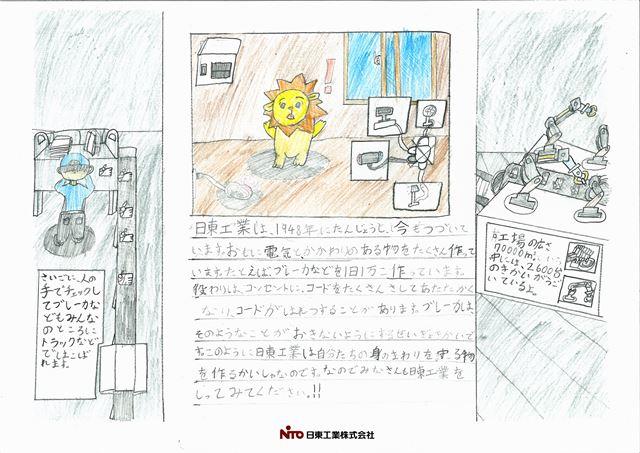 日東工業は、1948年にたんじょうし、今もつづいて
います。おもに電気と、かかわりのある物をたくさん作って
います。たとえばブレーカなどを1日1万こ作っています。
役わりは、コンセントに、コードをたくさんさしてあたたかく
なり、コードがはれつすることがあります。ブレーカは、
そのようなことが おきないようにするせいぎょきかいで
す。このように日東工業は自分たちの身のまわりを守る物
を作るかいしゃなのです。なのでみなさんも日東工業を
しってみてください。!!
さいごに、人の
手でチェックし
てブレーカな
どもみんな
のところに
トラックなど
ではこば
れます。
工場の広さ
70000m²
中には、2600台
のきかいがうご
いているよ。
NITO 日東工業株式会社